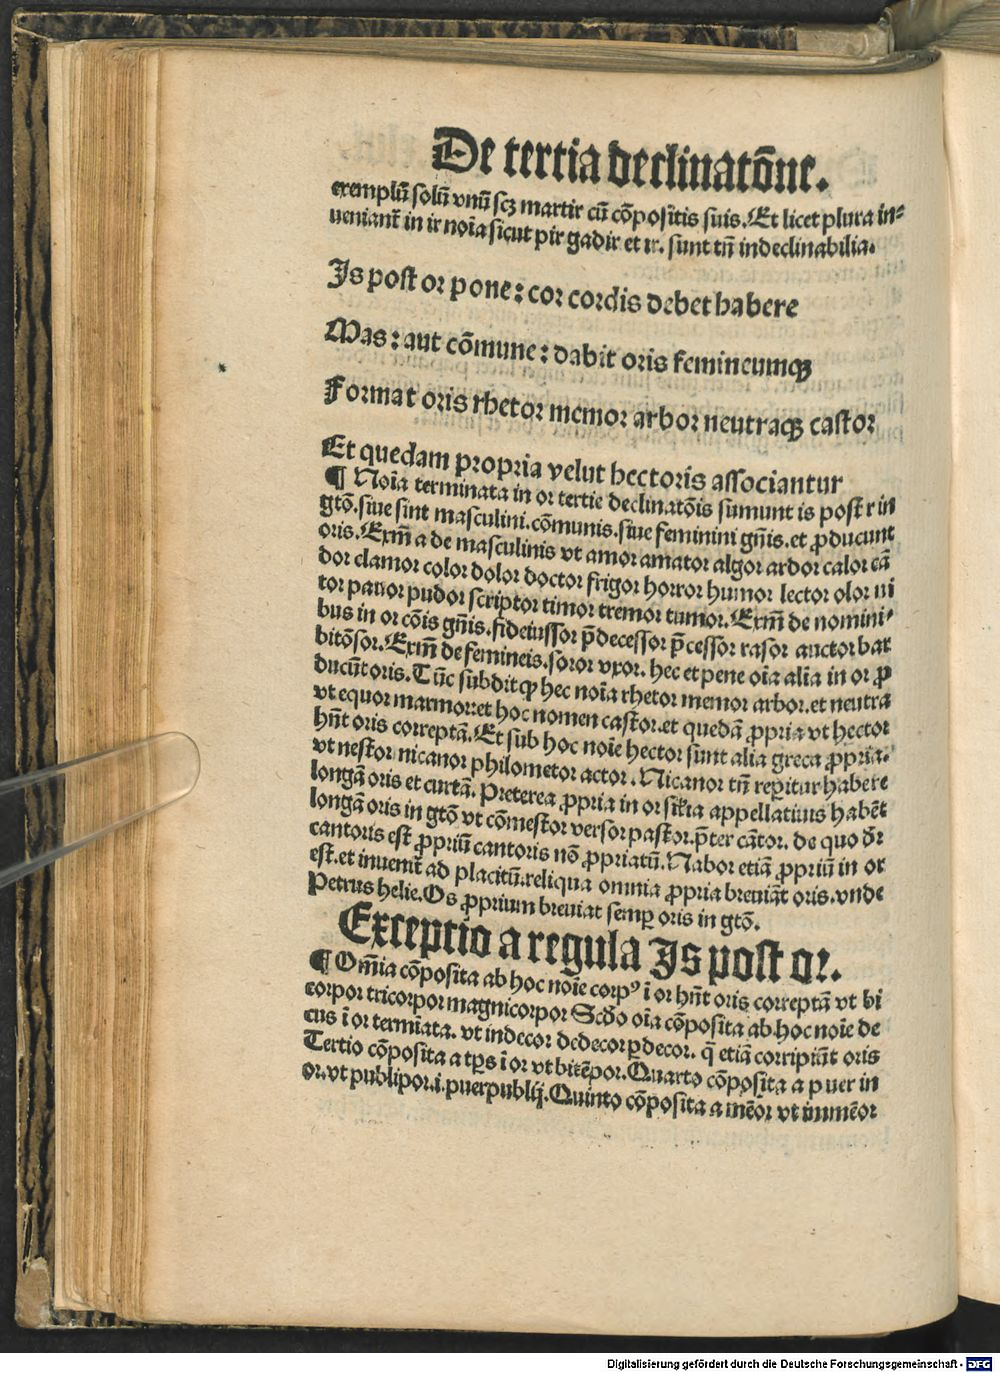 De tertia declinatōne.
exemplū solū vnū scꝫ martir cū cōpositis suis. Et licet plura in⸗
ueniant̄ in ir noīa sicut pir gadir et ir. sunt tn̄ indeclinabilia.
Is post or pone: cor cordis debet habere
Mas: aut cōmune: dabit oris femineumqꝫ
Format oris rhetor memor arbor neutraqꝫ castor
Et quedam propria velut hectoris associantur
¶ Noīa terminata in or tertie declinatōis sumunt is post r in
gtō. siue sint masculini. cōmunis. siue feminini gn̄is. et ꝓducunt
oris. Exm̄ a de masculinis vt amor amator algor ardor calor cā
dor clamor color dolor doctor frigor horror humor lector olor ni
tor pauor pudor scriptor timor tremor tumor. Exm̄ de nomini⸗
bus in or cōis gn̄is. fideiussor p̄decessor p̄cessor rasor auctor bar
bitōsor. Exm̄ de femineis. soror vxor. hec et pene oīa alia in or ꝓ
ducūt oris. Tūc subdit ꝙ hec noīa rhetor memor arbor. et neutra
vt equor marmor: et hoc nomen castor. et quedā ꝓpria vt hector
hn̄t oris correptā. Et sub hoc noīe hector sunt alia greca ꝓpria.
vt nestor nicanor philometor actor. Nicanor tn̄ reꝑitur habere
longā oris et curtā. Preterea ꝓpria in or sīlia appellatiuis habēt
longā oris in gtō vt cōmestor versor pastor. p̄ter cātor. de quo dr̄
cantoris est ꝓpriū cantoris nō ꝓpriatū. Nabor etiā ꝓpriū in or
est. et inuenit̄ ad placitū. reliqua omnia ꝓpria breuiāt oris. vnde
Petrus helie. Os ꝓprium breuiat semꝑ oris in gtō.
Exceptio a regula Is post or.
¶ Om̄ia cōposita ab hoc noīe corpꝰ ī or hn̄t oris correptā vt bi
corpor tricorpor magnicorpor Scd̄o oīa cōposita ab hoc noīe de
cus ī or termīata. vt indecor dedecor ꝑdecor. q̄ etiā corripiāt oris
Tertio cōposita a tꝑs ī or vt bitēpor. Quarto cōposita a puer in
or. vt publipor. i. puer publij. Quinto cōposita a mēor vt immēor
Digitalisierung gefördert durch die Deutsche Forschungsgemeinschaft - DFG